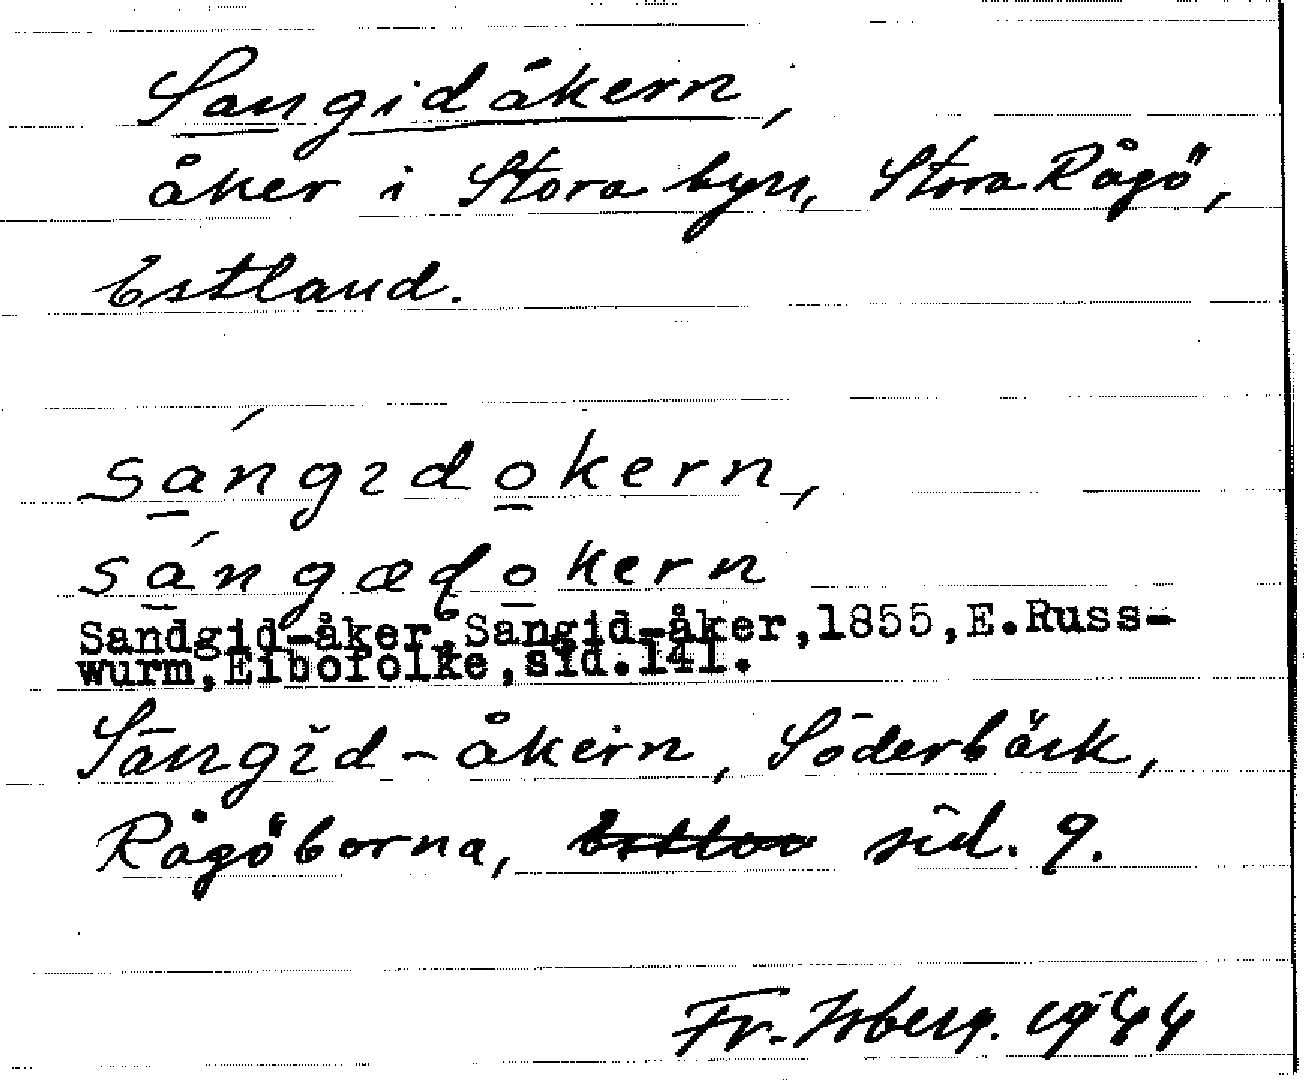 Sangidåkern,
åker i Stora byn, Stora Rågö,
Estland.
sa̲ńgıdo̲kern,
sa̲ńgædo̲kern
Sandgid-åker, Sangid-åker, 1855, E. Russ-
wurm, Eibofolke, sid. 141.
Sāngĭd-åkern, Söderbäck,
Rågöborna, sid. 9.
Fr. Isberg. 1944